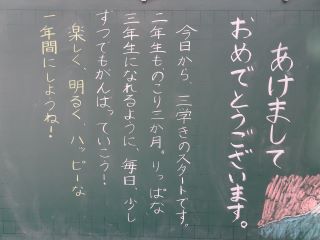 あけまして
おめでとうございます。
今日から、三学きのスタートです。
二年生ものこり三か月。りっぱな
三年生になれるように、毎日、少し
ずつでもがんばっていこう！
楽しく、明るく、ハッピーな
一年間にしようね！